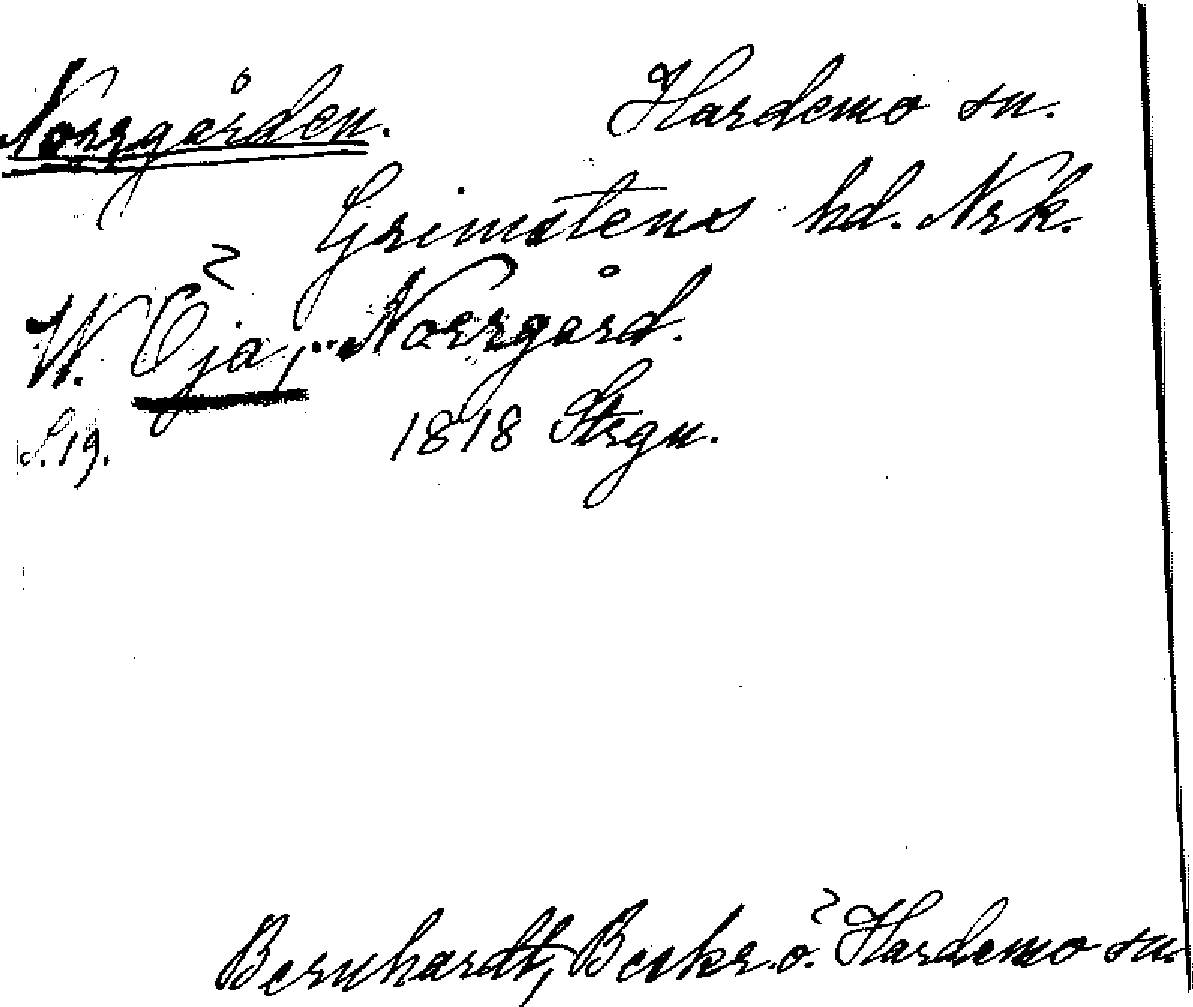 Norrgården. Hardemo sn.
Grimstens hd. Nrk.
W. Öja, Norrgård.
S. 19. 1818 Strgn.
Bernhardt, Beskr. ö. Hardemo sn.